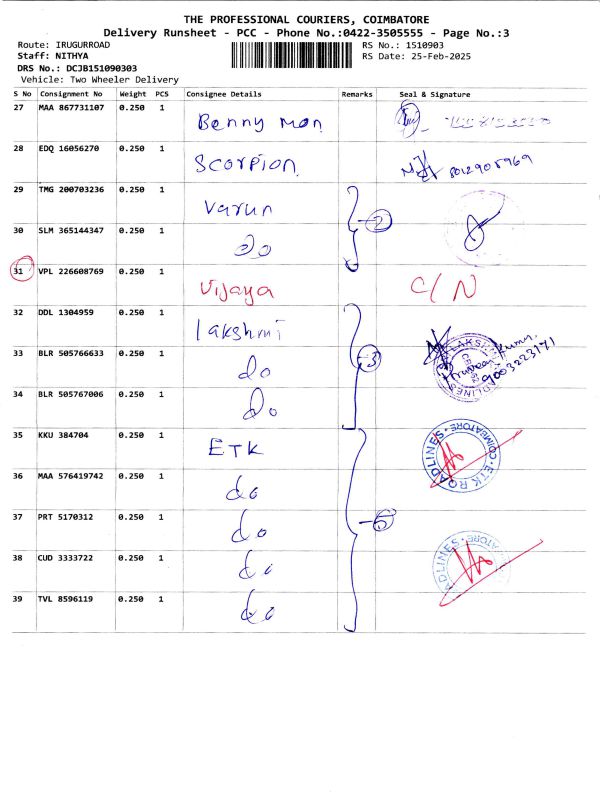 THE PROFESSIONAL COURIERS, COIMBATORE
Delivery Runsheet - PCC - Phone No.:0422-3505555 - Page No.:3
Route: IRUGURROAD RS No.: 1510903
Staff: NITHYA RS Date: 25-Feb-2025
DRS No.: DCJB151090303
Vehicle: Two Wheeler Delivery
S No Consignment No Weight PCS Consignee Details Remarks Seal & Signature
27 MAA 867731107 0.250 1 Benny mon
28 EDQ 16056270 0.250 1 Scorpion 8012905969
29 TMG 200703236 0.250 1 Varun
30 SLM 365144347 0.250 1 do
2
31 VPL 226608769 0.250 1 Vijaya C/N
32 DDL 1304959 0.250 1 lakshmi
33 BLR 505766633 0.250 1 do 3 9003223171
34 BLR 505767006 0.250 1 do
35 KKU 384704 0.250 1 ETK COIMBATORE ETK ROADLINES
36 MAA 576419742 0.250 1 do
37 PRT 5170312 0.250 1 do 5
38 CUD 3333722 0.250 1 do
39 TVL 8596119 0.250 1 do